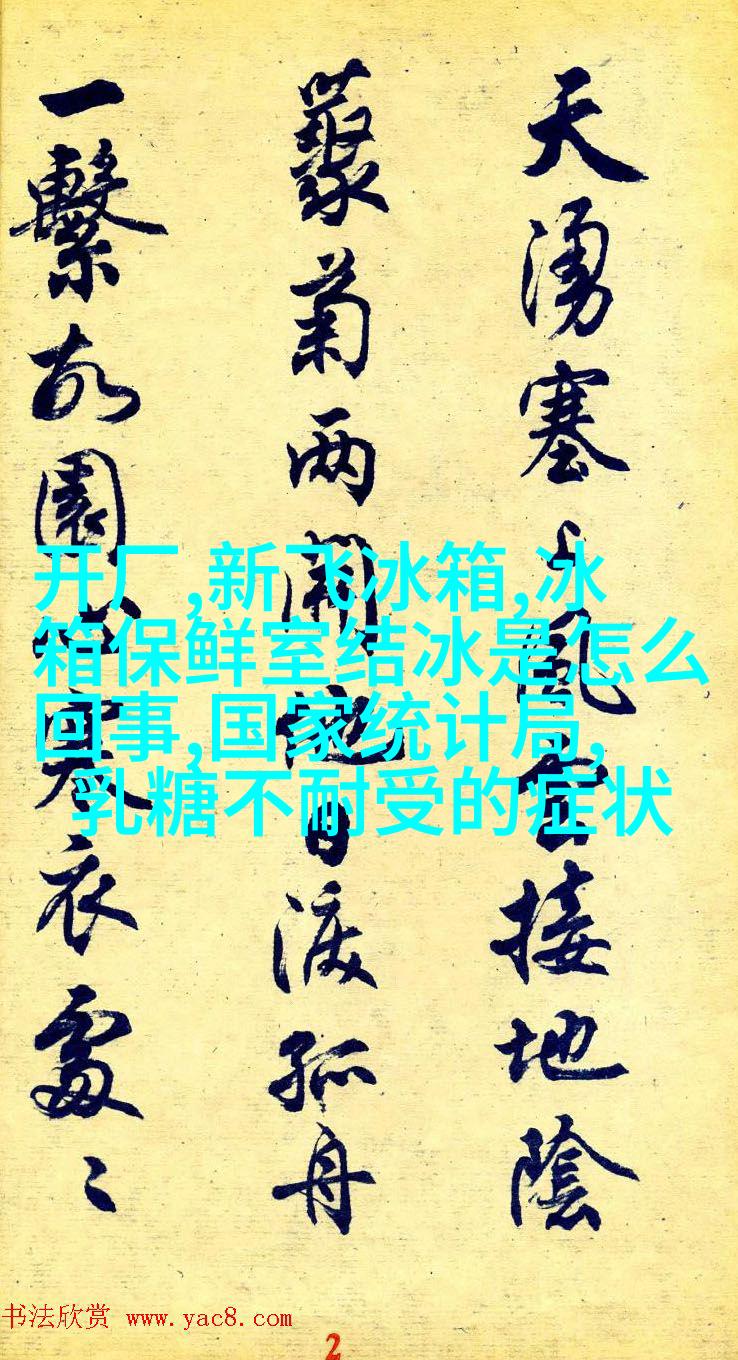 天湧塞上風雲接地陰
叢菊两開他日淚孤舟
一繫故園心寒衣處〻
开厂,新飞冰箱,冰
箱保鲜室结冰是怎么
回事,国家统计局,
乳糖不耐受的症状
书法欣赏 www.yac8.com
2